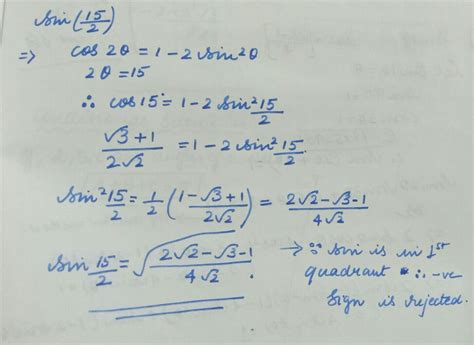 sin(15/2)
⇒ cos 2θ = 1 - 2 sin²θ
2θ = 15
∴ cos 15° = 1 - 2 sin² 15/2
(√3 + 1)/(2√2) = 1 - 2 sin² 15/2.
sin² 15/2 = 1/2 (1 - √3 + 1 / 2√2) = (2√2 - √3 - 1)/(4√2)
sin 15/2 = √((2√2 - √3 - 1)/(4√2)).
→ ∵ sin is in 1st
quadrant ∴ -ve
sign is rejected.